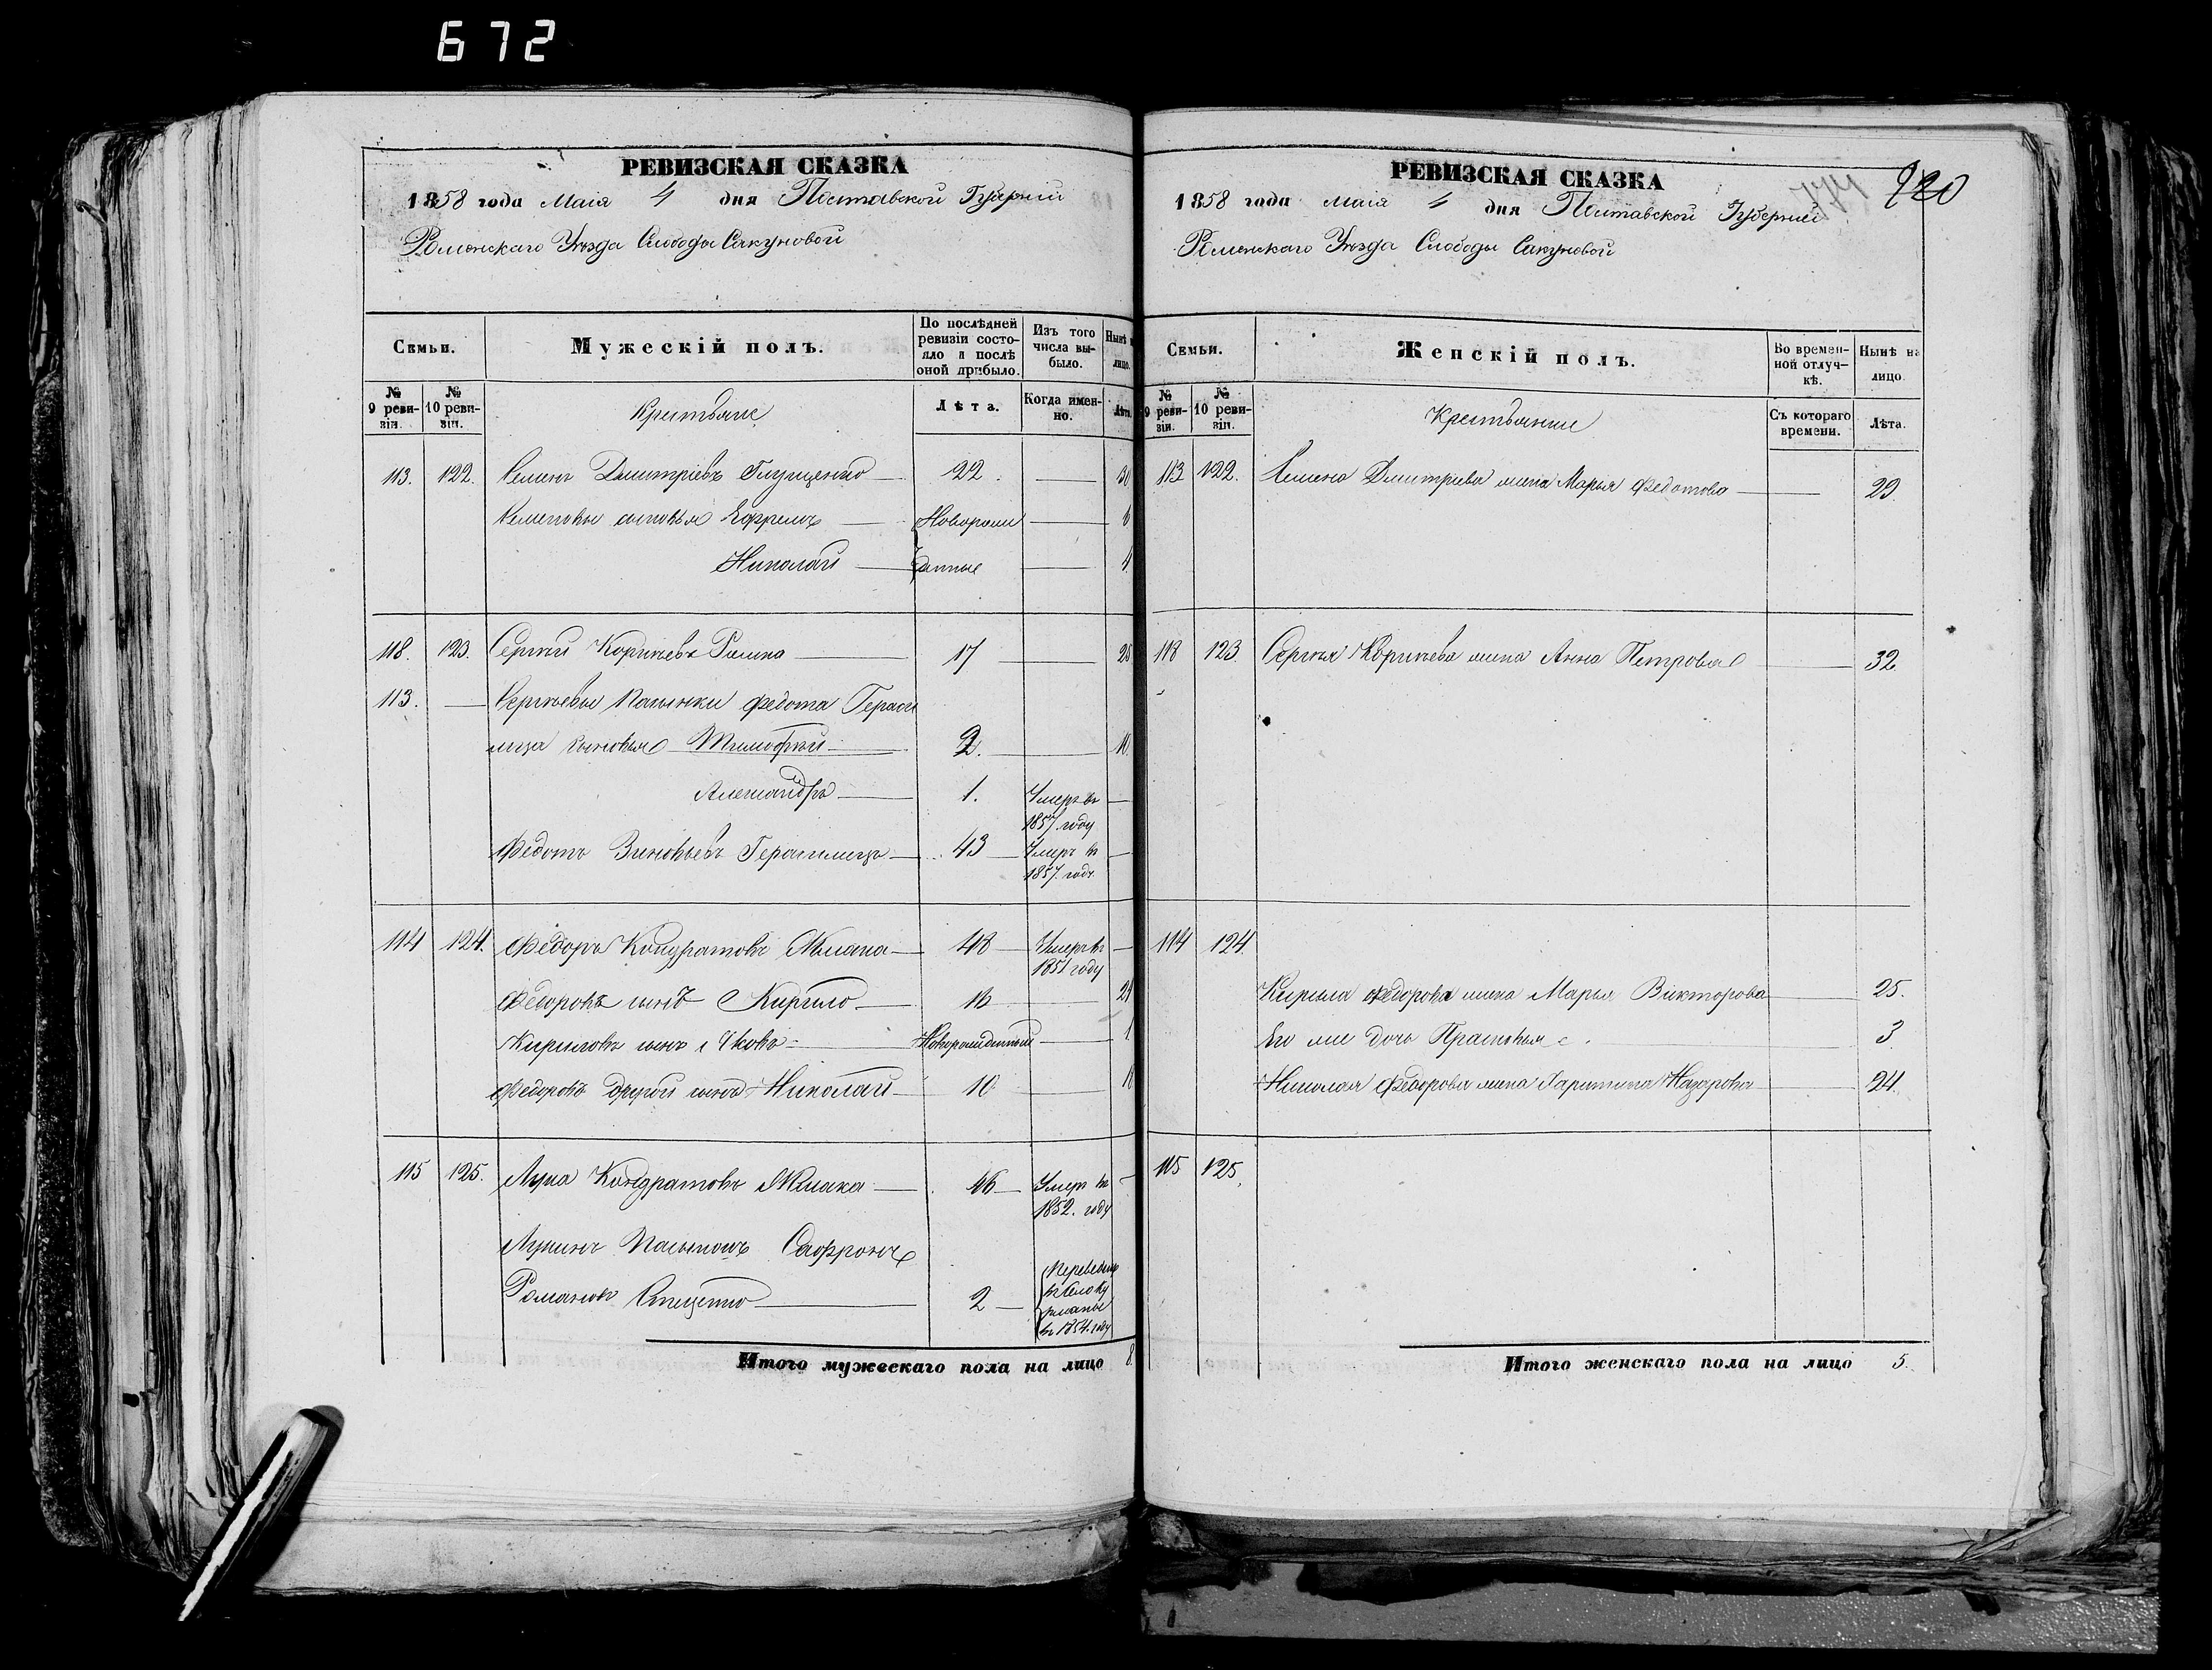 672
РЕВИЗСКАЯ СКАЗКА
1858 года Маія 4 дня Полтавской Губерніи
Роменскаго Уѣзда Слободы Сакуновой
Семьи.
Мужескій полъ.
По послѣдней ревизіи состояло и послѣ оной прибыло.
Изъ того числа выбыло.
Нынѣ
лицо.
№ 9 ревизіи.
№ 10 ревизіи.
Крестьяне
Лѣта.
Когда именно.
Лѣта.
113. 122. Семенъ Дмитріевъ Глущенко 22. 30
Семеновы сыновья Ефремъ Новорож 6
Николай денные 4
118. 123. Сергѣй Корнѣевъ 17 25
113. Сергѣевы пасынки Федота Гераси
мца сыновья Тимофѣй 2. 10
Александръ 1. Умеръ въ
1857 году
Федотъ Зиновьевъ Герасимецъ 43 Умеръ въ
1857. году
114 124. Федоръ Кондратовъ 48 Умеръ въ
1851 году
Федоровъ сынъ Кирило 16 24
Кириловъ сынъ Яковъ Новорожденный 1
Федоровъ другой сынъ Николай 10 18
115 125. Лука Кондратовъ 46 Умеръ въ
1852. году
Лукинъ пасынокъ Софронъ
Романовъ 2 Переведенъ
въ 1854. году
Итого мужескаго пола на лицо 8.
РЕВИЗСКАЯ СКАЗКА
774 720
1858 года Маія 4 дня Полтавской Губерніи
Роменскаго Уѣзда Слободы Сакуновой
Семьи.
Женскій полъ.
Во временной отлучкѣ.
Нынѣ на лицо.
№ 9 ревизіи.
№ 10 ревизіи.
Крестьянки
Съ котораго времени.
Лѣта.
113 122. Семена Дмитріева жена Марья Федотова 29.
118 123. Сергѣя Корнѣева жена Анна Петрова 32
114 124.
Кирила Федорова жена Марья Викторова 25.
Его же дочь Прасковья 3.
Николая Федорова жена Харитина Назарова 24.
115 125.
Итого женскаго пола на лицо 5.